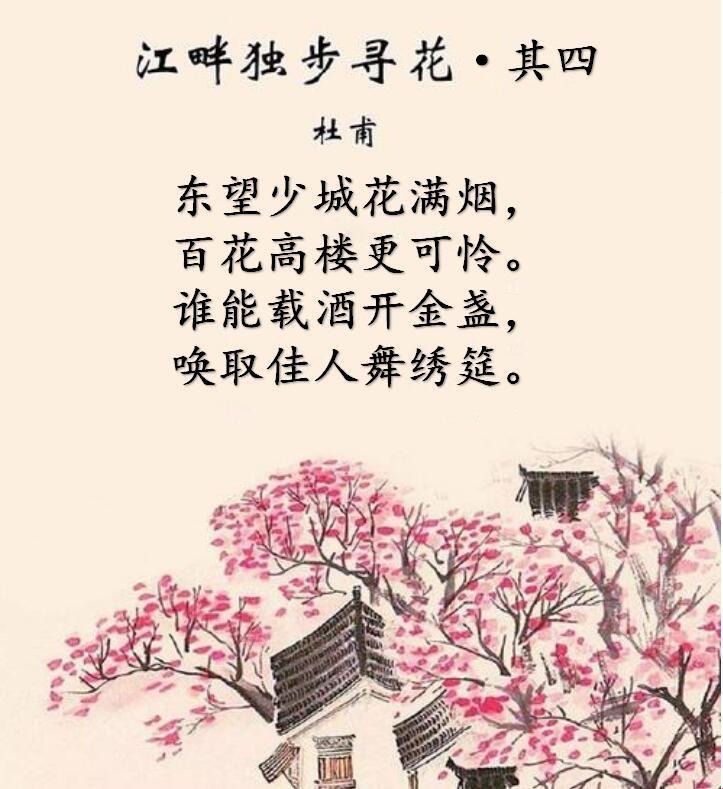 江畔独步寻花·其四
杜甫
东望少城花满烟，
百花高楼更可怜。
谁能载酒开金盏，
唤取佳人舞绣筵。